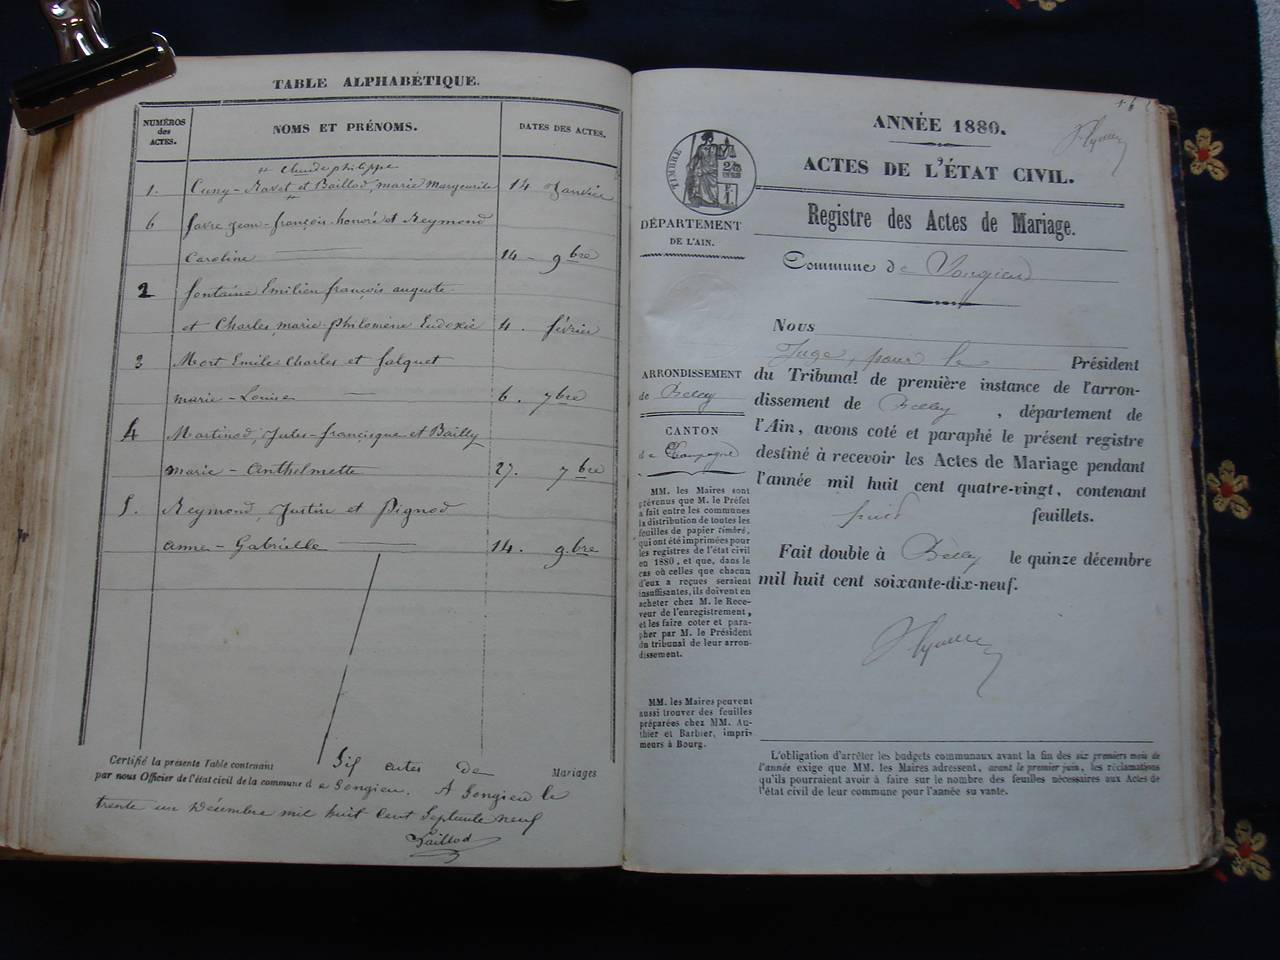 TABLE ALPHABÉTIQUE.
NUMÉROS
des
ACTES.
NOMS ET PRÉNOMS.
DATES DES ACTES.
Claude philippe
1. Cuny-Ravet et Baillod, marie Marguerite 14 Janvier
6 favre Jean-françois-honoré et Reymond
Caroline 14 - 9bre
2 fontaine Emilien françois auguste
et Charles, marie-philomène Eudoxie 4. février
3 Mort Emile Charles et falquet
marie-Louise 6. 7bre
4 Martinod, Jules-francisque et Bailly
marie-Anthelmette 27. 7bre
5. Reymond, Justin et Pignod
anne-Gabrielle 14. 9.bre
Certifié la présente Table contenant Six actes de Mariages
par nous Officier de l'état civil de la commune de Songieu. A Songieu le
trente un Décembre mil huit cent Septante neuf
Baillod
ANNÉE 1880.
ACTES DE L'ÉTAT CIVIL.
Registre des Actes de Mariage.
TIMBRE
DÉPARTEMENT
DE L'AIN.
Commune de Songieu
Nous
Juge, pour le Président
du Tribunal de première instance de l'arron-
dissement de Belley, département de
l'Ain, avons coté et paraphé le présent registre
destiné à recevoir les Actes de Mariage pendant
l'année mil huit cent quatre-vingt, contenant
huit feuillets.
Fait double à Belley le quinze décembre
mil huit cent soixante-dix-neuf.
ARRONDISSEMENT
de Belley
CANTON
de Champagne
MM. les Maires sont
prévenus que M. le Préfet
a fait entre les communes
la distribution de toutes les
feuilles de papier timbré,
qui ont été imprimées pour
les registres de l'état civil
en 1880, et que, dans le
cas où celles que chacun
d'eux a reçues seraient
insuffisantes, ils doivent en
acheter chez M. le Rece-
veur de l'enregistrement,
et les faire coter et para-
pher par M. le Président
du tribunal de leur arron-
dissement.
MM. les Maires peuvent
aussi trouver des feuilles
préparées chez MM. Au-
thier et Barbier, impri-
meurs à Bourg.
L'obligation d'arrêter les budgets communaux avant la fin des six premiers mois de
l'année exige que MM. les Maires adressent, avant le premier juin, les réclamations
qu'ils pourraient avoir à faire sur le nombre des feuilles nécessaires aux Actes de
l'état civil de leur commune pour l'année suivante.